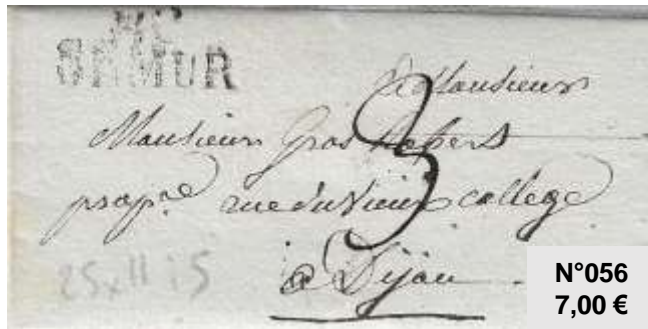 SEMUR
A Monsieur
Monsieur Gros
3
propre rue du Vieux college
a Dijon
N°056
7,00 €